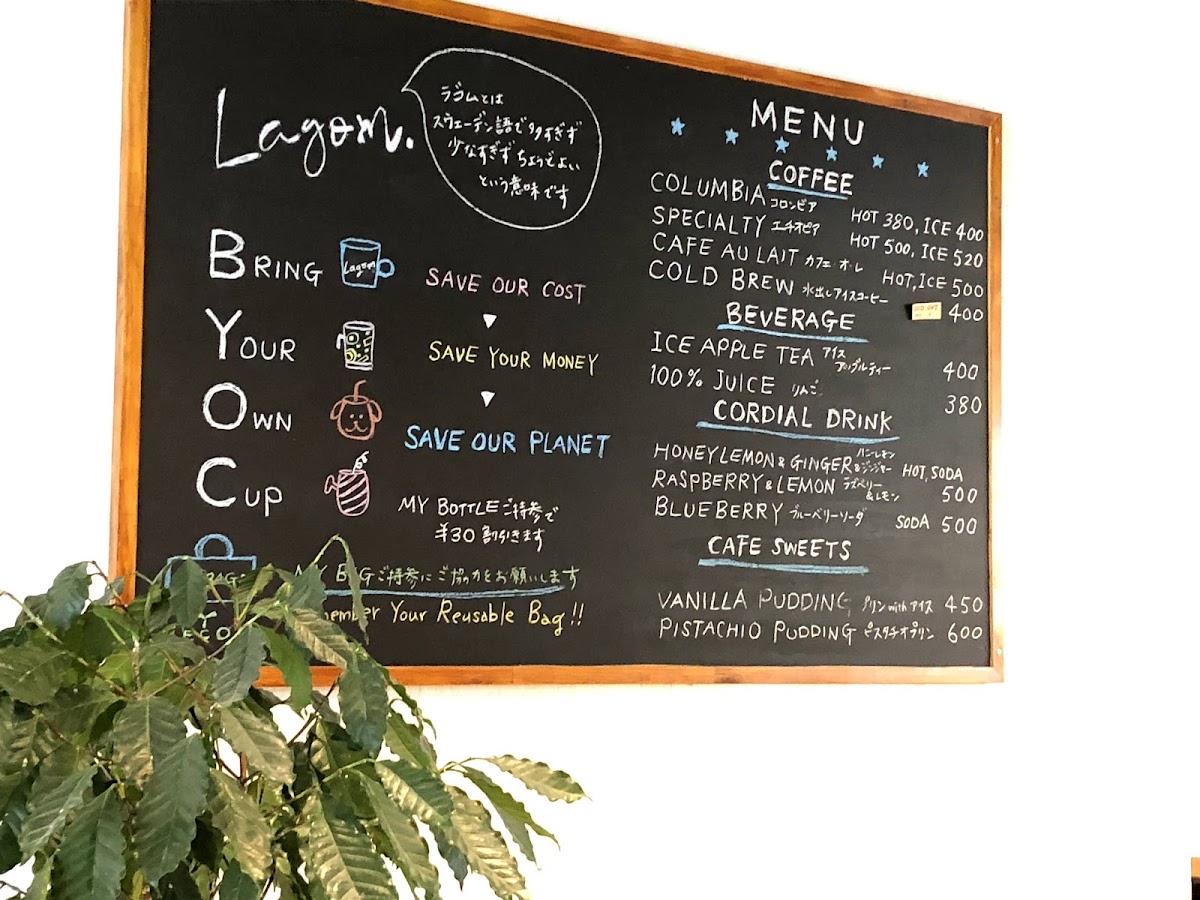 Lagom.
ラゴムとは
スウェーデン語で多すぎず
少なすぎず ちょうどよい
という意味です
BRING
Lagom
YOUR
OWN
CUP
SAVE OUR COST
SAVE YOUR MONEY
SAVE OUR PLANET
MY BOTTLE ご持参で
¥30 割引きます
MY BAG ご持参にご協力をお願いします
Your Reusable Bag!!
MENU
COFFEE
COLUMBIA コロンビア HOT 380, ICE 400
SPECIALTY エチオピア HOT 500, ICE 520
CAFE AU LAIT カフェ オ・レ HOT, ICE 500
COLD BREW 水出しアイスコーヒー 400
BEVERAGE
ICE APPLE TEA アイスアップルティー 400
100% JUICE りんご 380
CORDIAL DRINK
HONEY LEMON & GINGER ハニーレモン&ジンジャー HOT, SODA
RASPBERRY & LEMON ラズベリー&レモン 500
BLUEBERRY ブルーベリーソーダ SODA 500
CAFE SWEETS
VANILLA PUDDING プリン with アイス 450
PISTACHIO PUDDING ピスタチオプリン 600